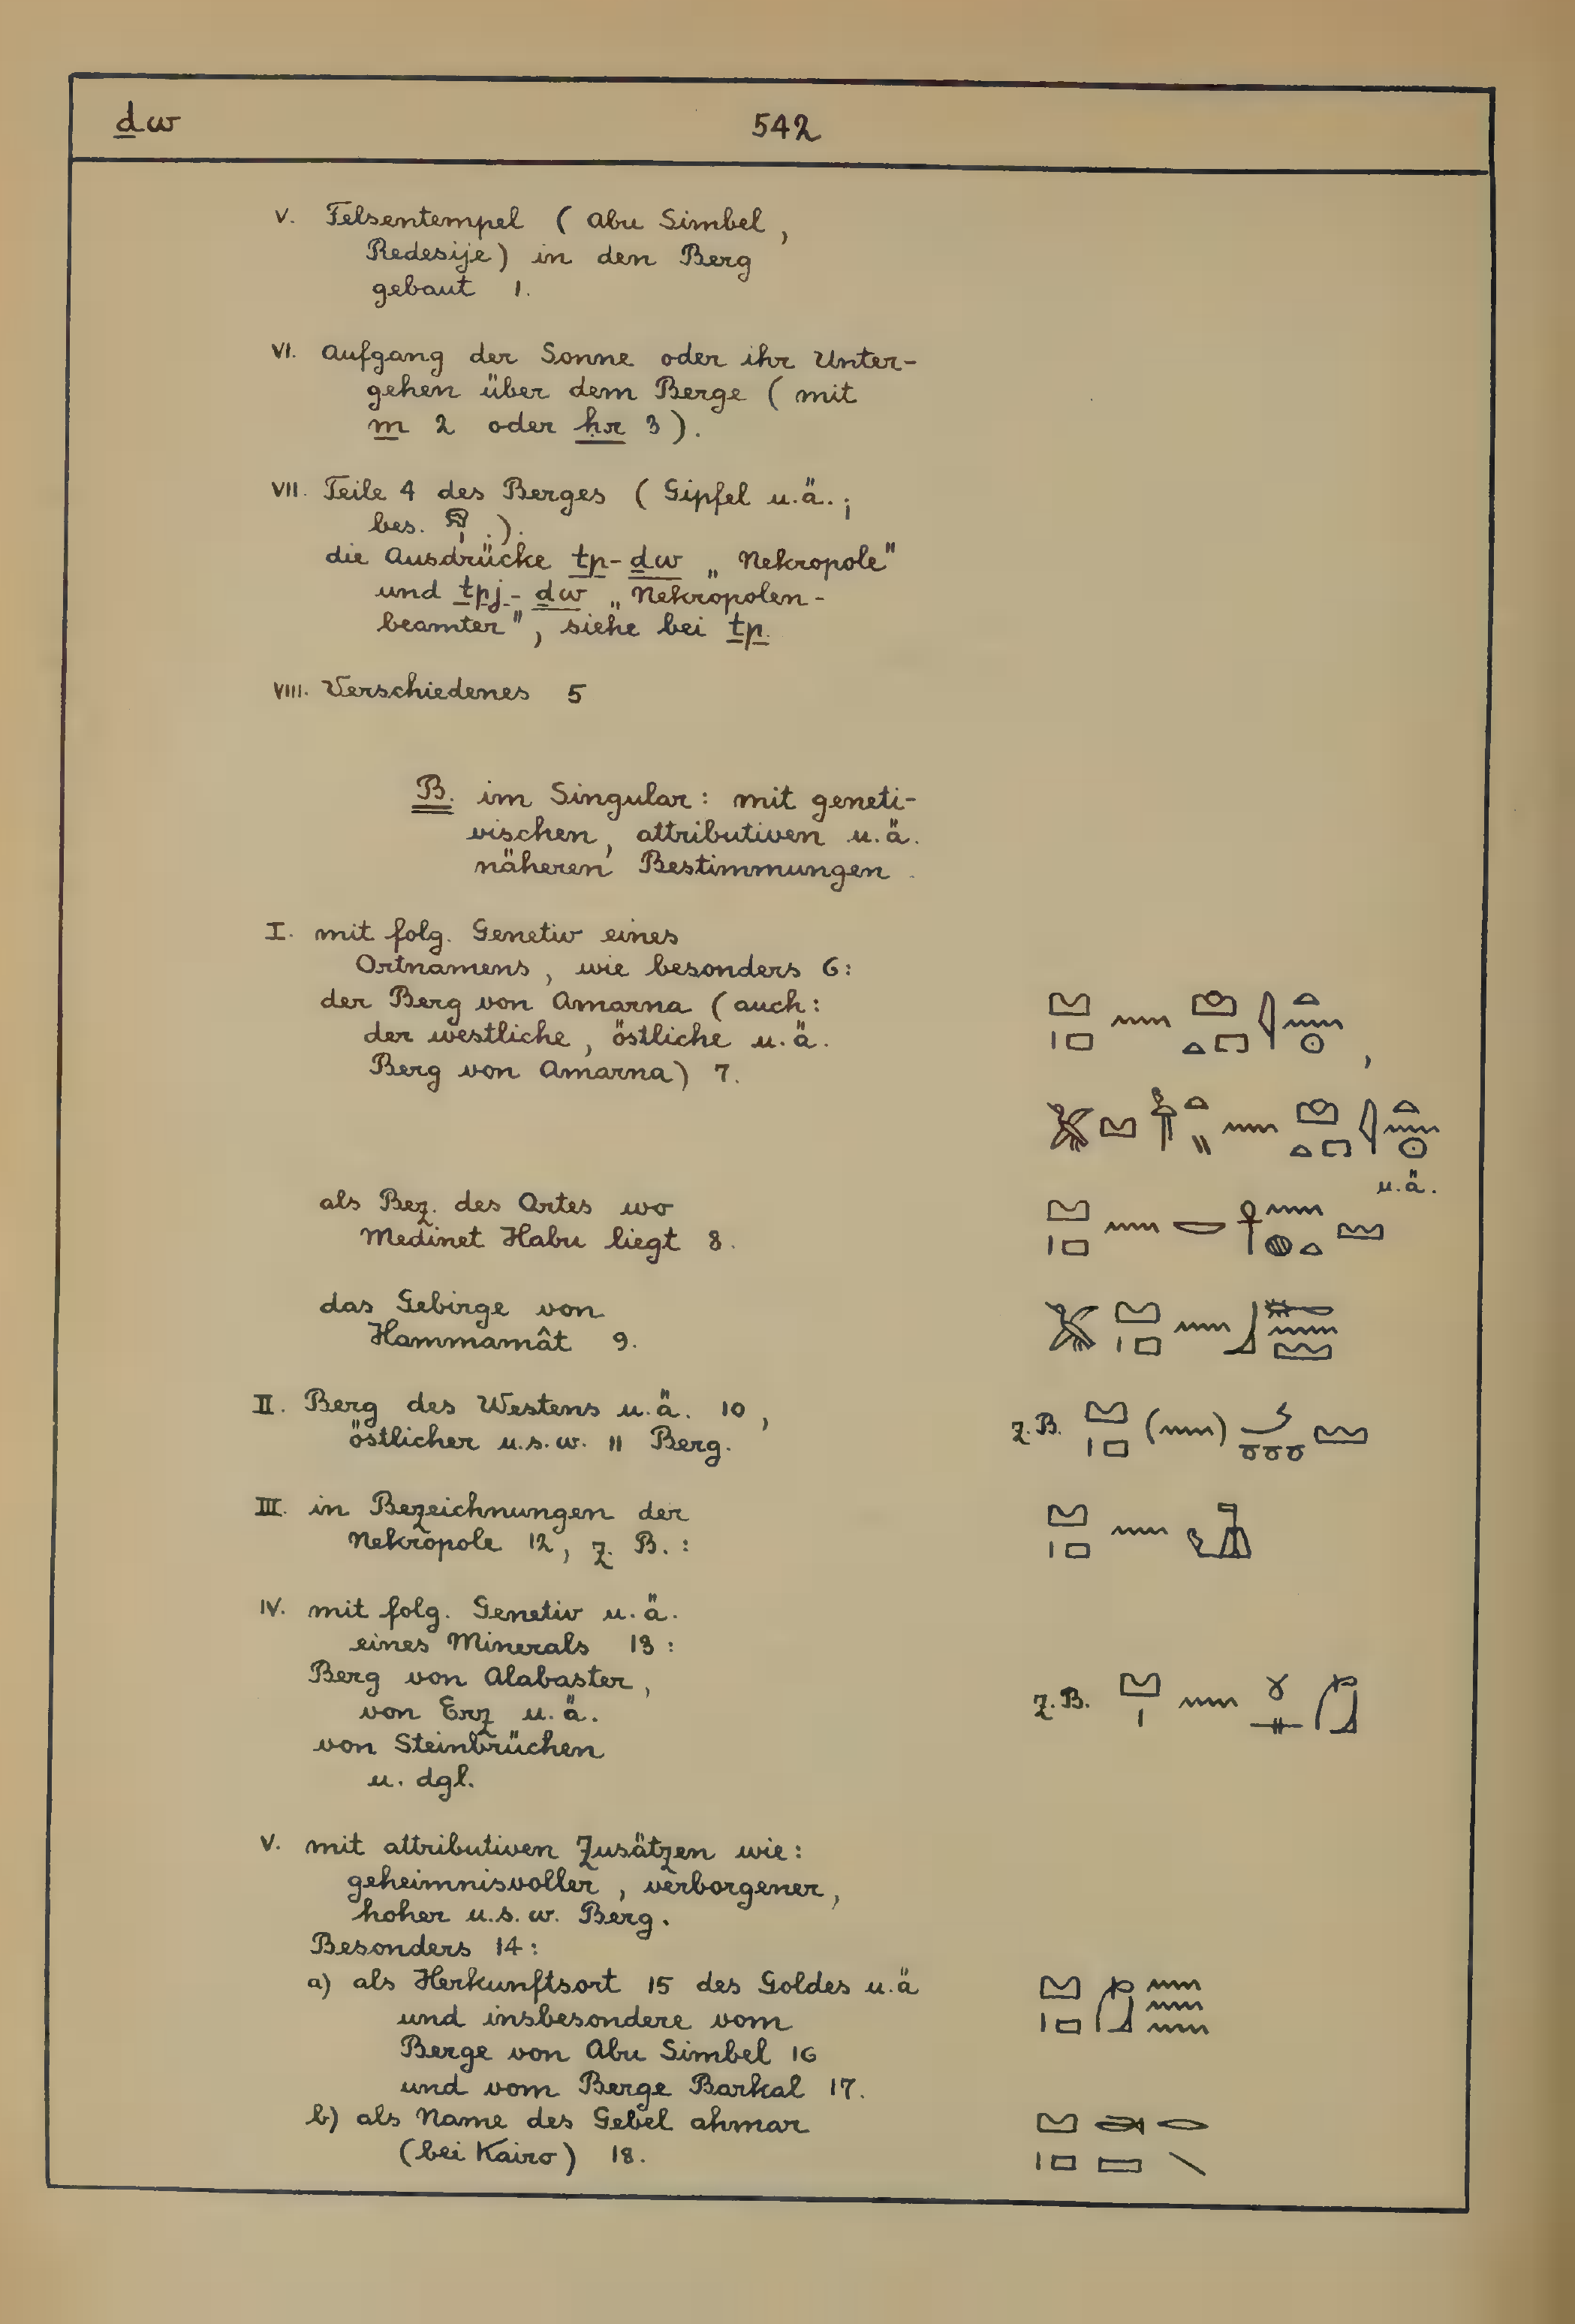 ḏw 542
V. Felsentempel ( Abu Simbel ,
Redesije ) in den Berg
gebaut 1.
VI. Aufgang der Sonne oder ihr Unter-
gehen über dem Berge ( mit
m 2 oder ḥr 3 ).
VII. Teile 4 des Berges ( Gipfel u.ä. ;
bes. 𓁶𓏤 ).
die Ausdrücke tp-ḏw „ Nekropole"
und tpj-ḏw „ Nekropolen-
beamter" , siehe bei tp.
VIII. Verschiedenes 5
B. im Singular: mit geneti-
vischen , attributiven u.ä.
näheren Bestimmungen .
I. mit folg. Genetiv eines
Ortnamens , wie besonders 6:
der Berg von Amarna ( auch:
der westliche , östliche u.ä.
Berg von Amarna ) 7.
u.ä.
als Bez. des Ortes wo
Medinet Habu liegt 8.
das Gebirge von
Hammamât 9.
II. Berg des Westens u.ä. 10 , z.B.
östlicher u.s.w. 11 Berg.
III. in Bezeichnungen der
Nekropole 12, z. B. :
IV. mit folg. Genetiv u.ä.
eines Minerals 13 :
Berg von Alabaster , z.B.
von Erz u.ä.
von Steinbrüchen
u. dgl.
V. mit attributiven Zusätzen wie :
geheimnisvoller , verborgener ,
hoher u.s.w. Berg.
Besonders 14 :
a) als Herkunftsort 15 des Goldes u.ä
und insbesondere vom
Berge von Abu Simbel 16
und vom Berge Barkal 17.
b) als Name des Gebel ahmar
(bei Kairo) 18.